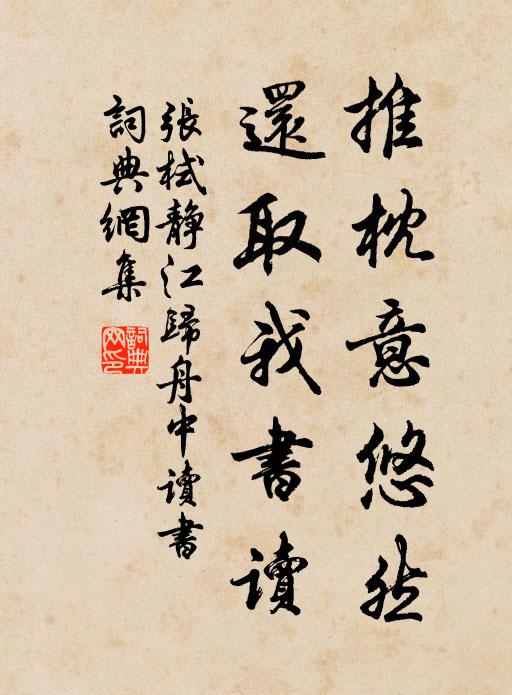 推枕意悠然
還取我書讀
張栻靜江歸舟中讀書
詞典網集
詞典網印